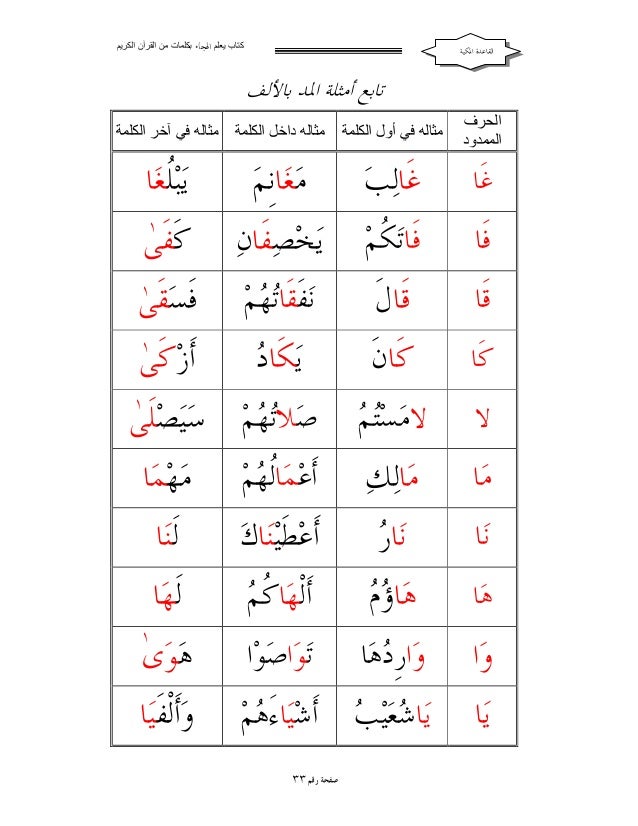 القاعدة المكية
كتاب يعلم (الهجاء) بكلمات من القرآن الكريم
تابع أمثلة المد بالألف
الحرف الممدود مثاله في أول الكلمة مثاله داخل الكلمة مثاله في آخر الكلمة
غَا غَالِبَ مَغَانِمَ يَبْلُغَا
فَا فَاتَكُمْ يَخْصِفَانِ كَفَىٰ
قَا قَالَ نَفَقَاتُهُمْ فَسَقَىٰ
كَا كَانَ يَكَادُ أَزْكَىٰ
لا لامَسْتُمُ صَلاتُهُمْ سَيَصْلَىٰ
مَا مَالِكِ أَعْمَالُهُمْ مَهْمَا
نَا نَارُ أَعْطَيْنَاكَ لَنَا
هَا هَاؤُمُ أَلْهَاكُمُ لَهَا
وَا وَارِدُهَا تَوَاصَوْا هَوَىٰ
يَا يَاشُعَيْبُ أَشْيَاءَهُمْ وَأَلْفَيَا
صفحة رقم ٣٣